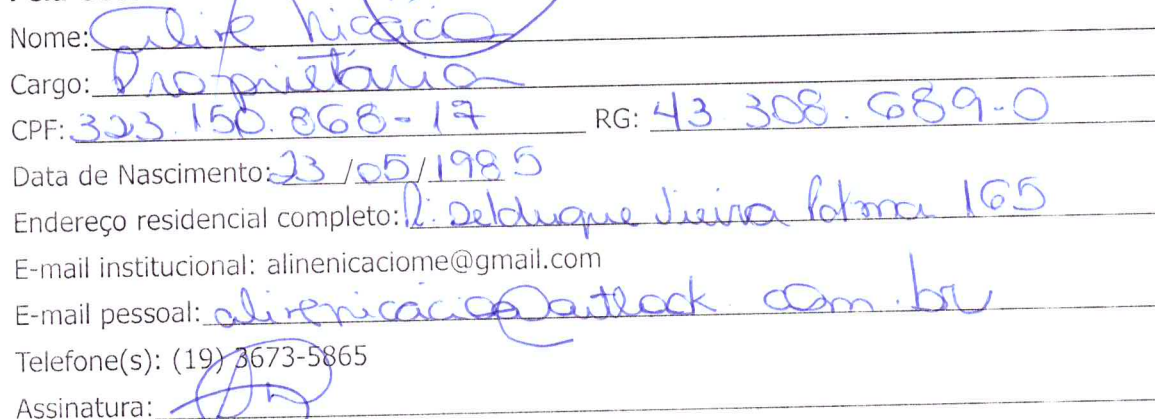 Nome: Aline Nicacio
Cargo: Proprietária
CPF: 323.150.868-17 RG: 43 308.689-0
Data de Nascimento: 23/05/1985
Endereço residencial completo: R. Delduque Vieira 165
E-mail institucional: alinenicaciome@gmail.com
E-mail pessoal: alinenicacio@outlook.com.br
Telefone(s): (19) 3673-5865
Assinatura: